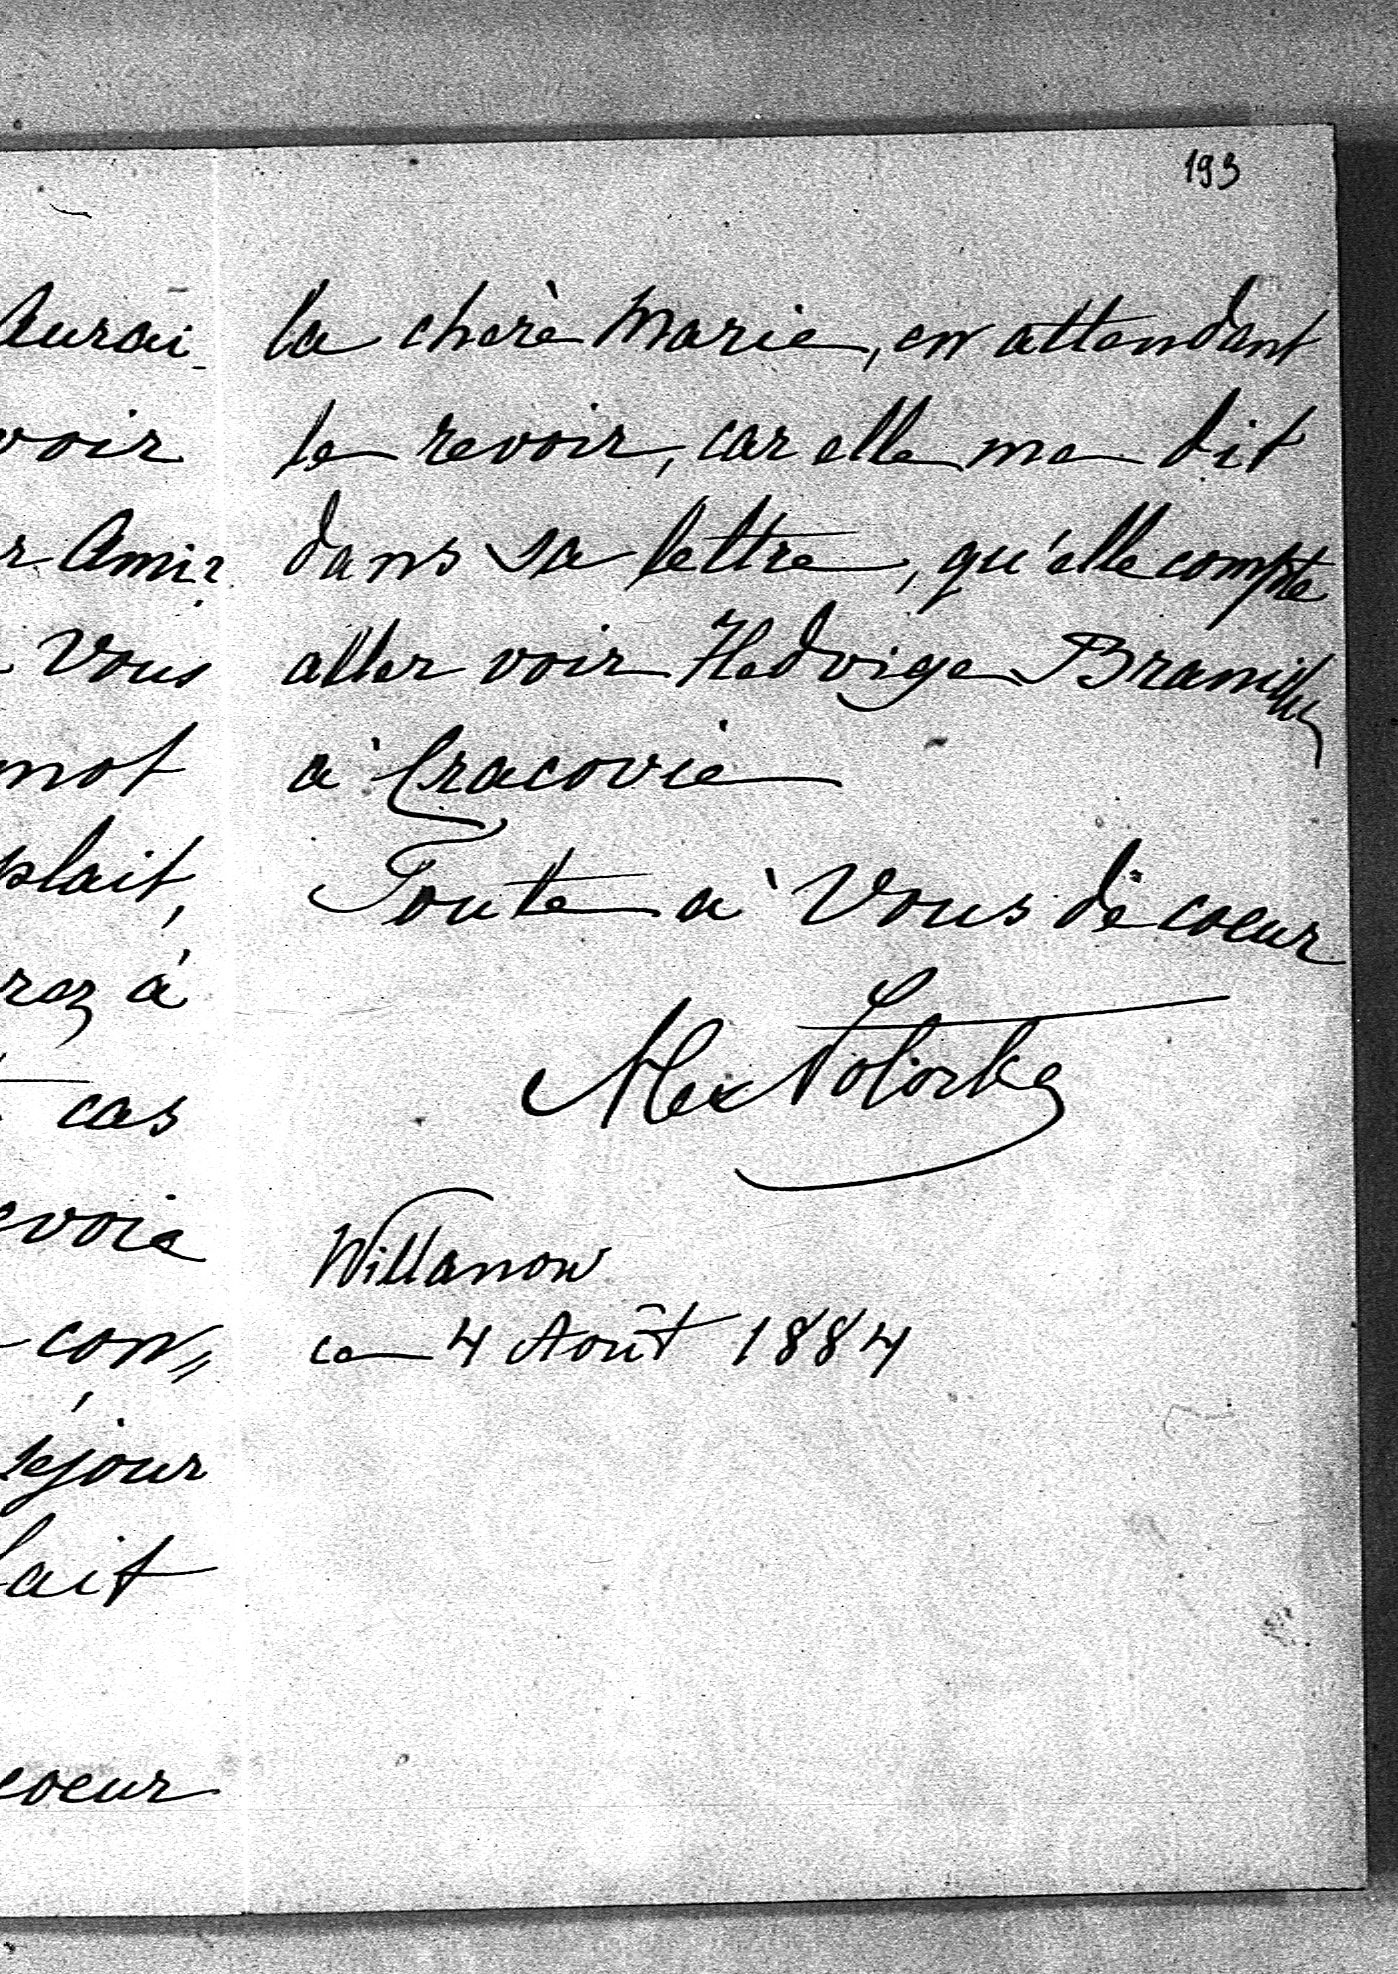 193
Aurai
voir
r Ami?
Vous
mot
plait,
rez à
cas
evoie
con=
séjour
lait
coeur
la chère Marie, en attendant
le revoir, car elle me dit
dans sa lettre, qu'elle compte
aller voir Hedvige
à Cracovie
Toute à Vous de coeur
Alex Potocka
Willanow
ce 4 Août 1884